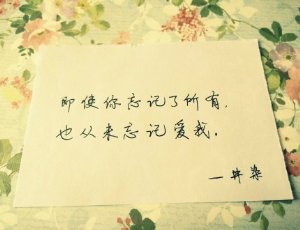 即使你忘记了所有，
也从来忘记爱我。
一井染